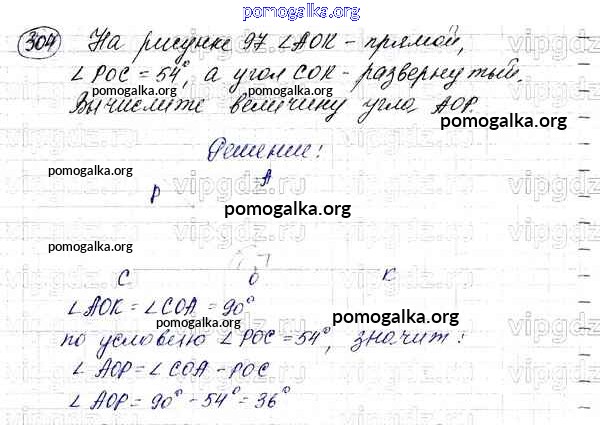 pomogalka.org
304 На рисунке 97 ∠AOK - прямой,
∠POC = 54°, а угол COK - развернутый.
Вычислите величину угла AOP.
pomogalka.org
pomogalka.org
Решение:
pomogalka.org
vipgdz.ru
A
P
pomogalka.org
pomogalka.org
C O K
∠AOK = ∠COA = 90°
по условию ∠POC = 54°, значит:
pomogalka.org
pomogalka.org
∠AOP = ∠COA - POC
∠AOP = 90° - 54° = 36°
pomogalka.org